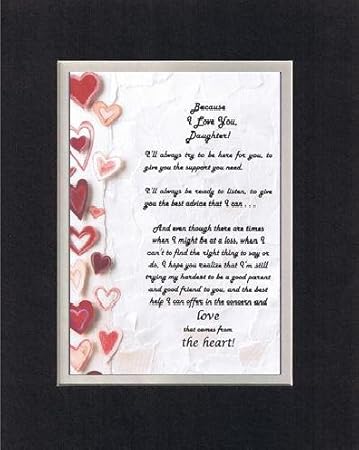 Because
I Love You,
Daughter!
I'll always try to be here for you, to
give you the support you need.
I'll always be ready to listen, to give
you the best advice that I can . . .
And even though there are times
when I might be at a loss, when I
can't to find the right thing to say or
do, I hope you realize that I'm still
trying my hardest to be a good parent
and good friend to you, and the best
help I can offer in the concern and
love
that comes from
the heart!